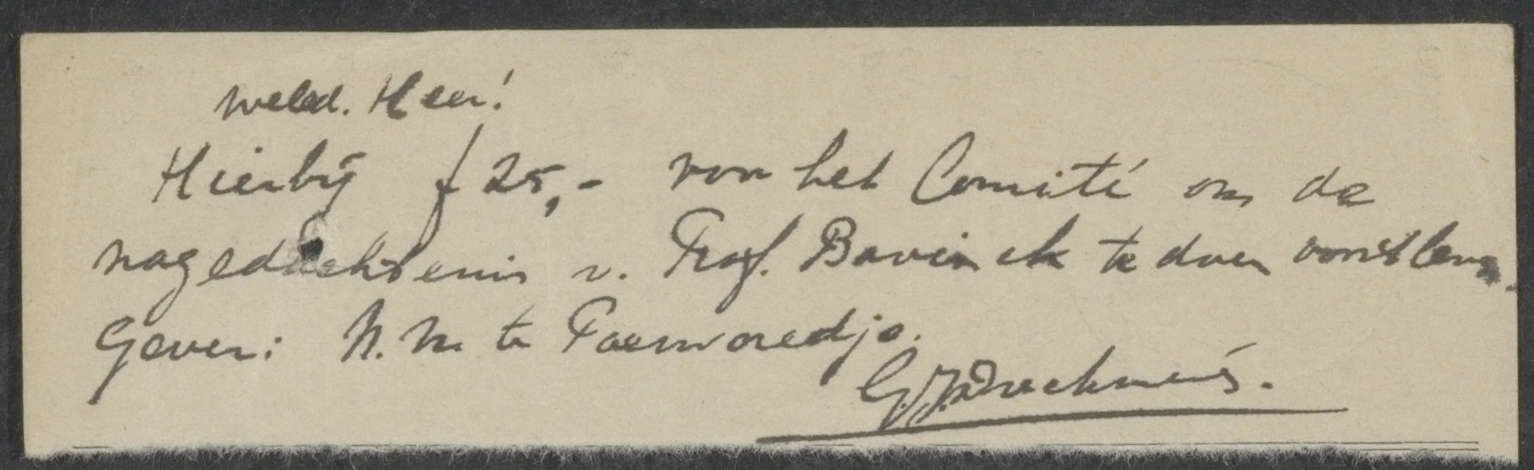 Weled. Heer!
Hierbij f 25,- van het Comité om de
nagedachtenis v. Prof. Bavinck te doen voortleven.
Gever: N.N. te Poerworedjo.